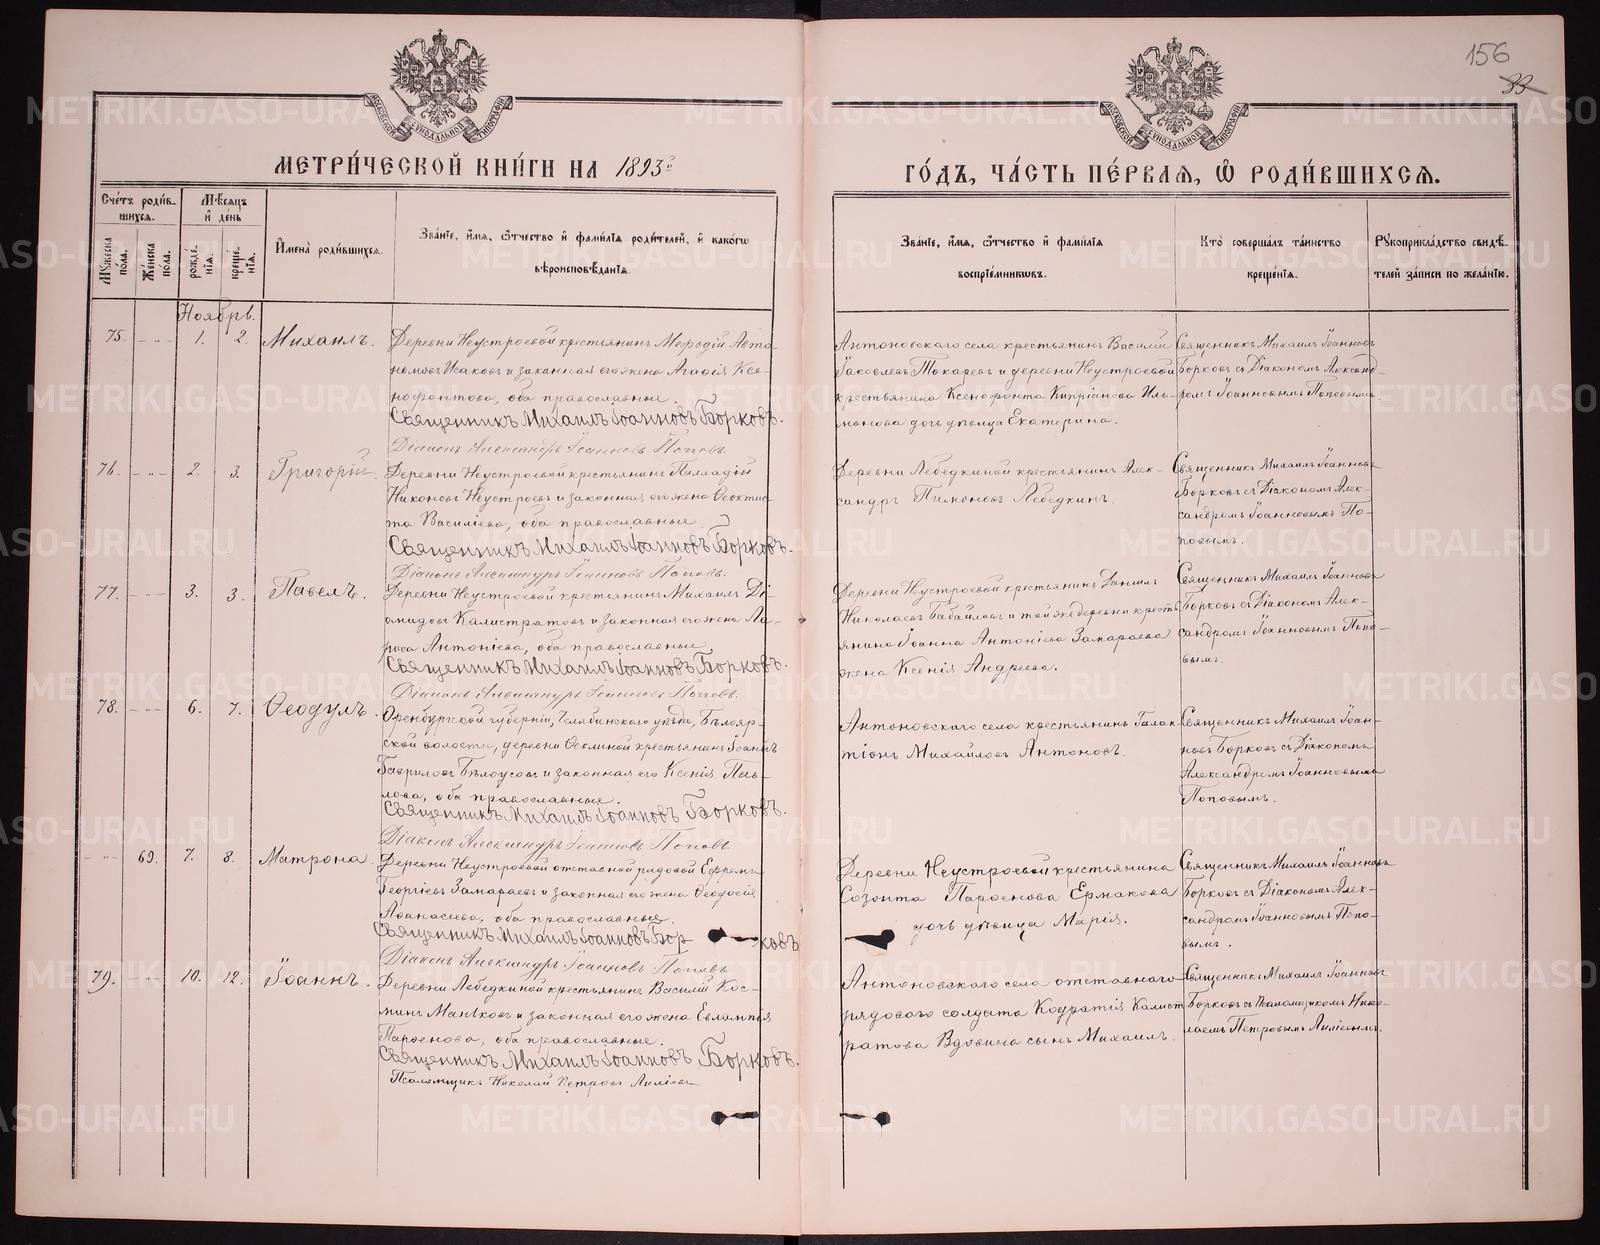 156
33
МОСКОВСКОЙ СѴНОДАЛЬНОЙ ТИПОГРАФІИ
МОСКОВСКОЙ СѴНОДАЛЬНОЙ ТИПОГРАФІИ
МЕТРИ́ЧЕСКОЙ КНИ́ГИ НА 1893й
ГО́ДЪ, ЧА́СТЬ ПЕ́РВАѦ, Ѡ҆ РОДИ́ВШИХСѦ.
Сче́тъ роди́в-
шихсѧ.
Мꙋ́жеска по́ла.
Же́нска по́ла.
Мѣ́сѧцъ и҆ де́нь
рожде́нїѧ.
креще́нїѧ.
И҆мена̀ роди́вшихсѧ.
Зва́нїе, и҆́мѧ, ѻ҆́тчество и҆ фами́лїѧ роди́телей, и҆ како́гѡ
вѣроисповѣ́данїѧ.
Зва́нїе, и҆́мѧ, ѻ҆́тчество и҆ фами́лїѧ
воспрїе́мникѡвъ.
Кто̀ соверша́лъ та́инство
креще́нїѧ.
Рꙋкоприкла́дство свидѣ́-
телей за́писи по жела́нїю.
Ноябрь.
75. - „ - 1. 2. Михаилъ.
Деревни Неустроевой крестьянинъ Меѳодій Авто-
номовъ Исаковъ и законная его жена Агафія Ксе-
нофонтова, оба православные.
Священникъ Михаилъ Іоанновъ Борковъ.
Діаконъ Александръ Іоанновъ Поповъ.
Антоновскаго села крестьянинъ Василій
Яковлевъ Токаревъ и деревни Неустроевой
крестьянина Ксенофонта Кипріанова Иль-
дочь дѣвица Екатерина.
Священникъ Михаилъ Іоанновъ
Борковъ съ Діакономъ Александ-
ромъ Іоанновымъ Поповымъ.
76. - „ - 2. 3. Григорій.
Деревни Неустроевой крестьянинъ Палладій
Никоновъ Неустроевъ и законная его жена Ѳеоктис-
та Василіева, оба православные.
Священникъ Михаилъ Іоанновъ Борковъ.
Діаконъ Александръ Іоанновъ Поповъ.
Деревни Лебедкиной крестьянинъ Алек-
сандръ Пимоновъ Лебедкинъ.
Священникъ Михаилъ Іоанновъ
Борковъ съ Діакономъ Алек-
сандромъ Іоанновымъ По-
повымъ.
77. - „ - 3. 3. Павелъ.
Деревни Неустроевой крестьянинъ Михаилъ Ді-
омидовъ Калистратовъ и законная его жена Ла-
риса Антоніева, оба православные.
Священникъ Михаилъ Іоанновъ Борковъ.
Діаконъ Александръ Іоанновъ Поповъ.
Деревни Неустроевой крестьянинъ Даніилъ
Николаевъ Бабайловъ и той же деревни кресть-
янина Іоанна Антоніева Замараева
жена Ксенія Андреева.
Священникъ Михаилъ Іоанновъ
Борковъ съ Діакономъ Алек-
сандромъ Іоанновымъ Попо-
вымъ.
78. - „ - 6. 7. Ѳеодулъ.
Оренбургской губерніи, Челябинскаго уѣзда, Бѣлояр-
ской волости, деревни крестьянинъ Іоаннъ
Гавриловъ Бѣлоусовъ и законная его Ксенія Пав-
лова, оба православные.
Священникъ Михаилъ Іоанновъ Борковъ.
Діаконъ Александръ Іоанновъ Поповъ
Антоновскаго села крестьянинъ Галак-
тіонъ Михайловъ Антоновъ.
Священникъ Михаилъ Іоан-
новъ Борковъ съ Діакономъ
Александромъ Іоанновымъ
Поповымъ.
- „ - 69. 7. 8. Матрона.
Деревни Неустроевой отставной рядовой Ефремъ
Георгіевъ Замараевъ и законная его жена Ѳеодосія
Аѳанасіева, оба православные.
Священникъ Михаилъ Іоанновъ Бор ковъ
Діаконъ Александръ Іоанновъ Поповъ
Деревни Неустроевой крестьянина
Созонта Парѳенова Ермакова
дочь дѣвица Марія.
Священникъ Михаилъ Іоанновъ
Борковъ съ Діакономъ Алек-
сандромъ Іоанновымъ Попо-
вымъ.
79. - „ - 10. 12. Іоаннъ.
Деревни Лебедкиной крестьянинъ Василій Кос-
минъ Маньковъ и законная его жена Евлампія
Парѳенова, оба православные.
Священникъ Михаилъ Іоанновъ Борковъ.
Псаломщикъ Николай Петровъ
Антоновскаго села отставного
рядового солдата Кодратія Калист-
ратова Вдовина сынъ Михаилъ.
Священникъ Михаилъ Іоанновъ
Борковъ съ Псаломщикомъ Нико-
лаемъ Петровымъ
METRIKI.GASO-URAL.RU